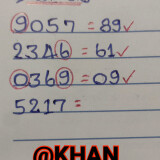 9057 = 89✓
2346 = 61✓
0369 = 09✓
5217 =
@KHAN